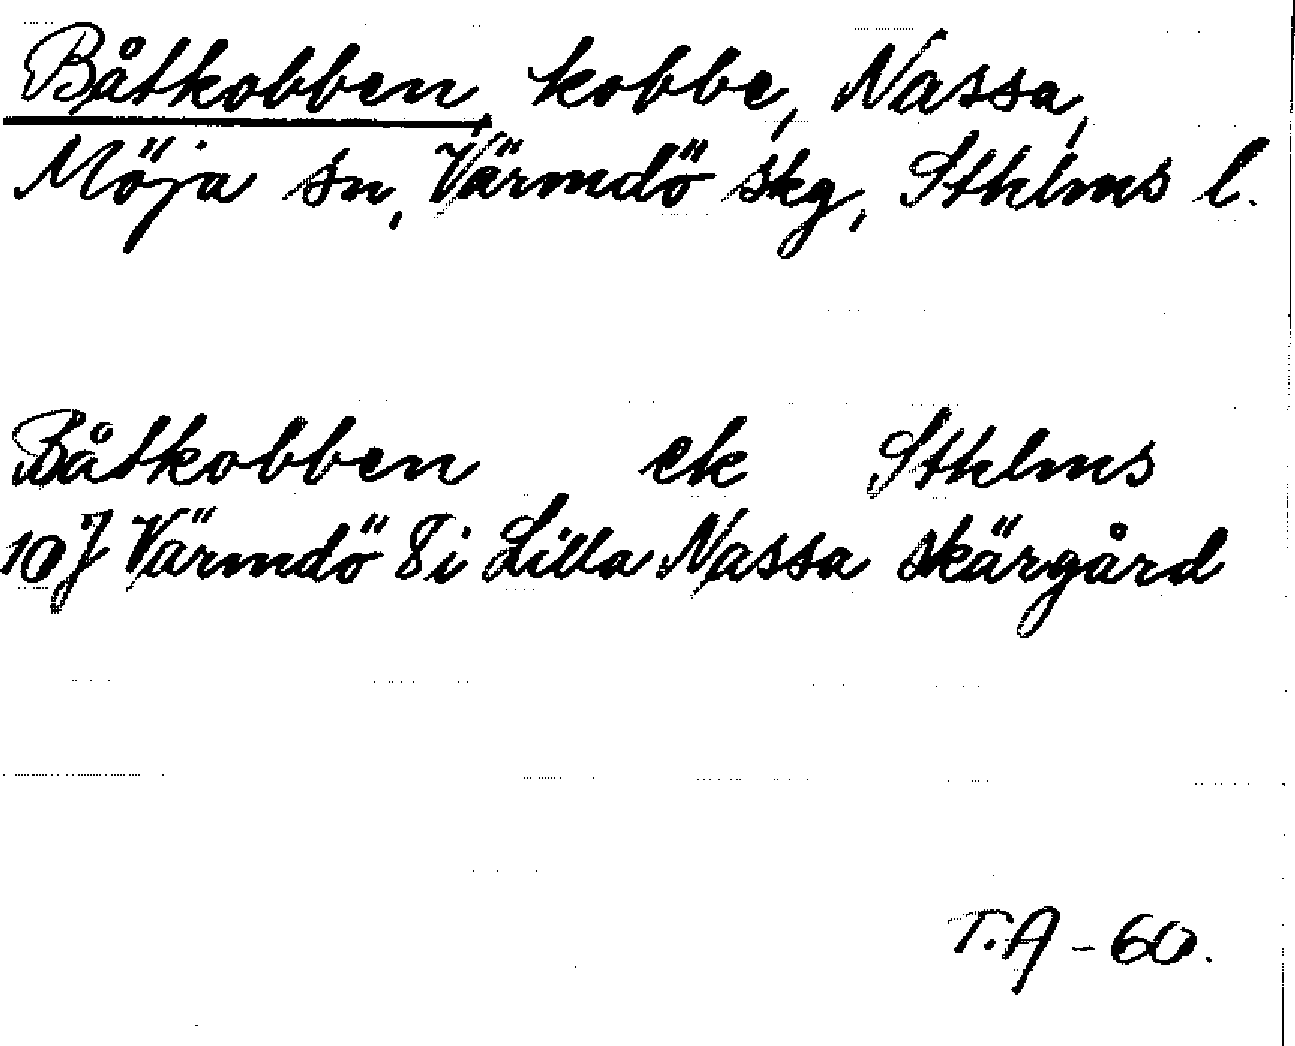 Båtkobben, kobbe, Nassa,
Möja sn, Värmdö skg, Sthlms l.
Båtkobben ek Sthlms
10J Värmdö 8i Lilla Nassa skärgård
T.A - 60.